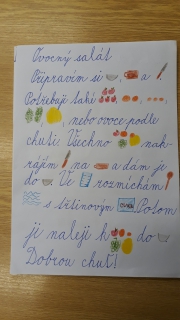 Ovocný salát
Připravím si , a
Potřebuji také , ,
, nebo ovoce podle
chuti. Všechno nak-
rájím na a dám je
do . Ve rozmíchám
s třtinovým CUKR. Potom
ji naleji k do
Dobrou chuť!